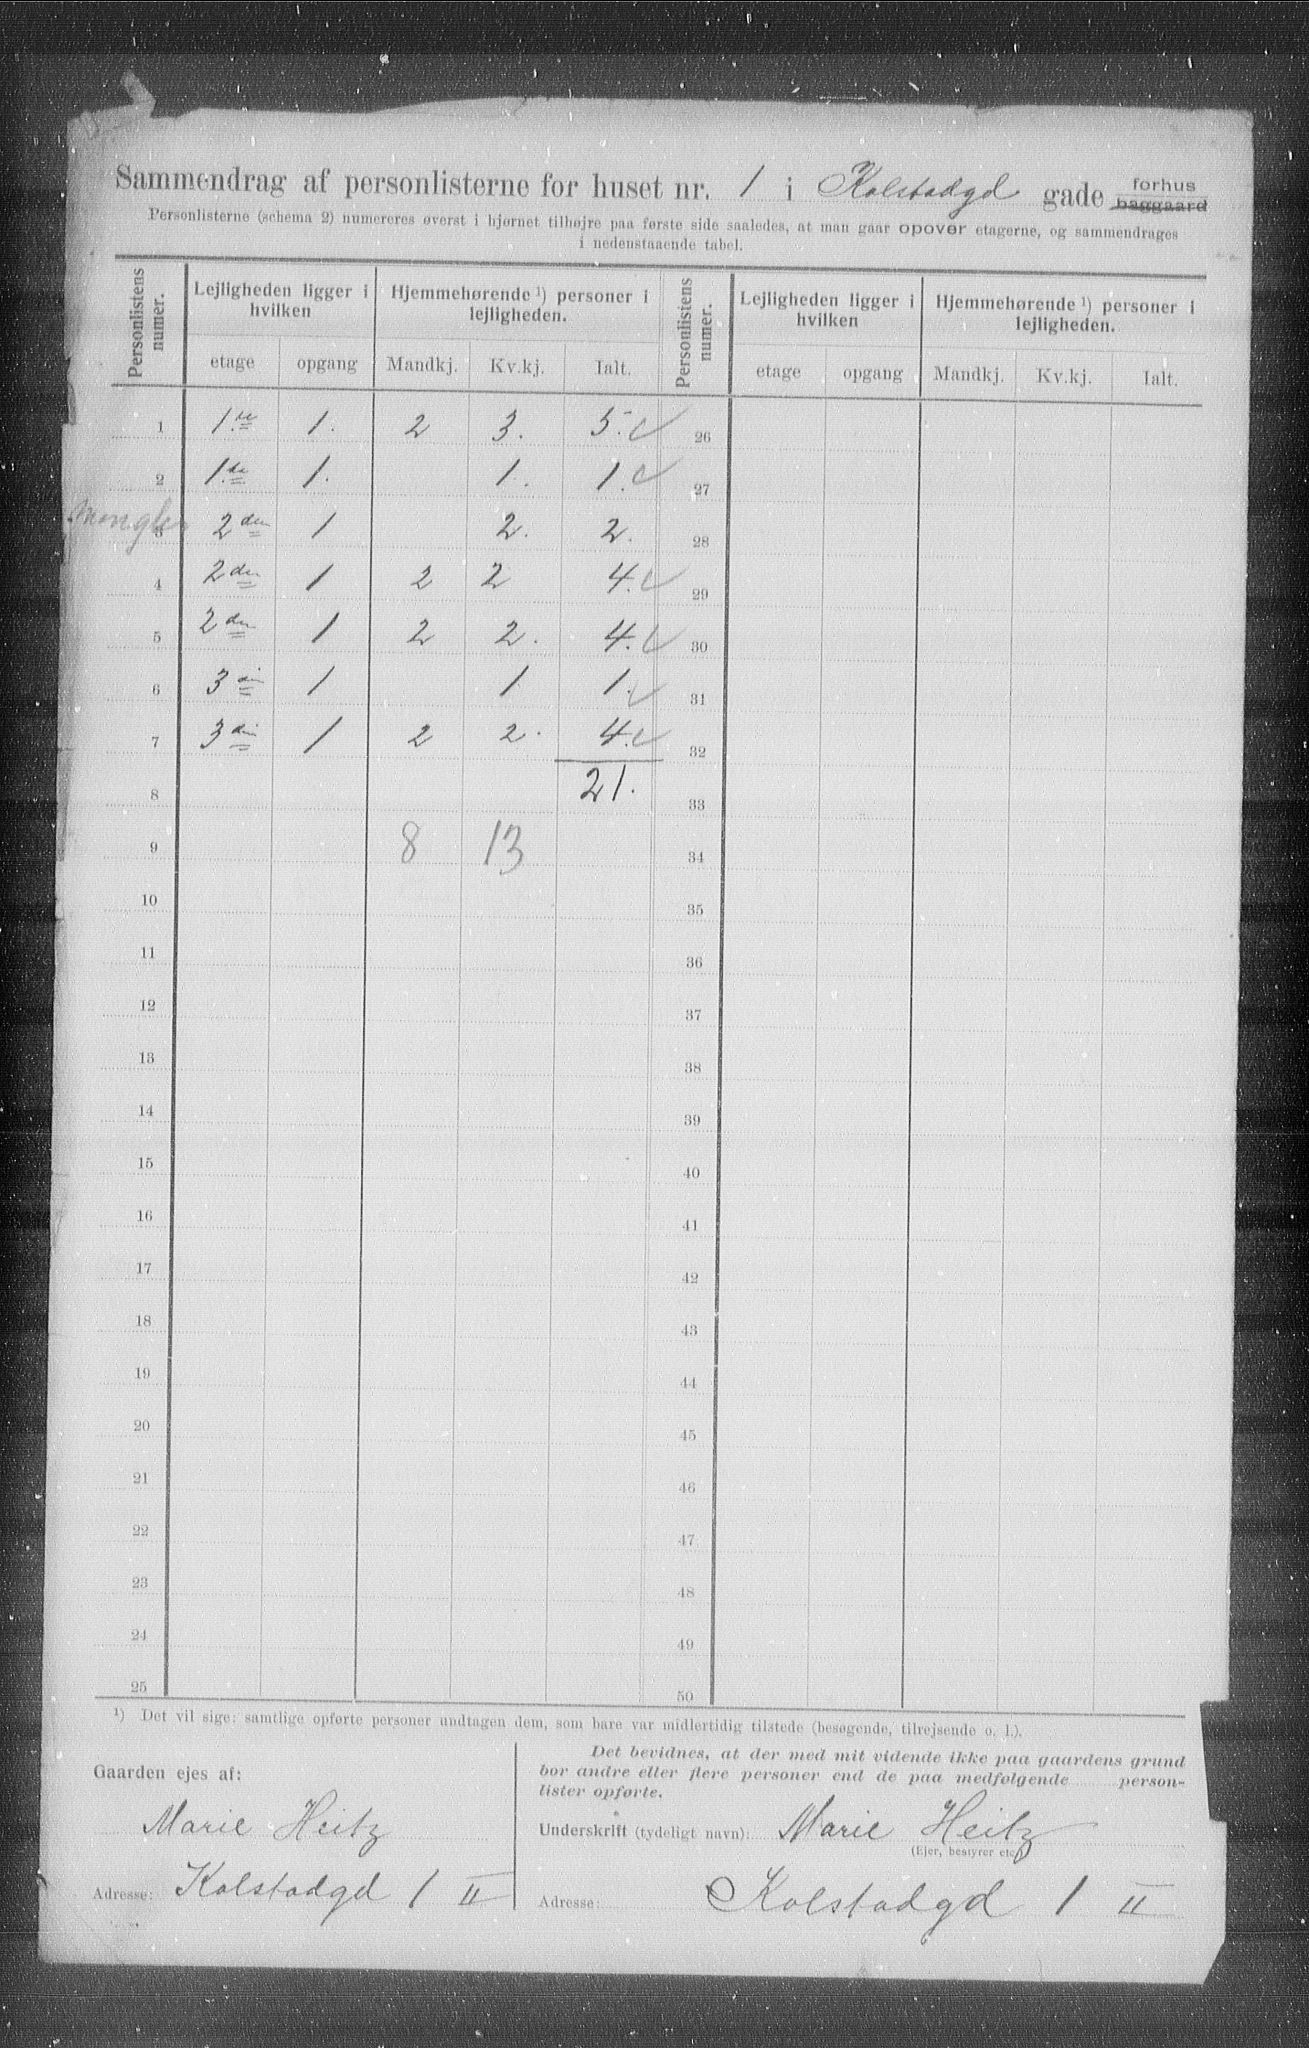 Sammendrag af personlisterne for huset nr. 1 i Kolstadgd gade forhus baggaard
Personlisterne (schema 2) numereres øverst i hjørnet tilhøjre paa første side saaledes, at man gaar opover etagerne, og sammendrages
i nedenstaaende tabel.
Personlistens numer. Lejligheden ligger i hvilken Hjemmehørende ¹) personer i lejligheden. Personlistens numer. Lejligheden ligger i hvilken Hjemmehørende ¹) personer i lejligheden.
etage opgang Mandkj. Kv.kj. Ialt. etage opgang Mandkj. Kv.kj. Ialt.
1 1.ste 1. 2 3. 5. 26
2 1.ste 1. 1. 1. 27
Mangler 3 2den 1 2. 2. 28
4 2den 1 2 2 4. 29
5 2den 1 2 2. 4. 30
6 3die 1 1 1. 31
7 3die 1 2 2. 4. 32
8 21. 33
9 8 13 34
10 35
11 36
12 37
13 38
14 39
15 40
16 41
17 42
18 43
19 44
20 45
21 46
22 47
23 48
24 49
25 50
¹) Det vil sige: samtlige opførte personer undtagen dem, som bare var midlertidig tilstede (besøgende, tilrejsende o. l.).
Gaarden ejes af:
Marie Heitz
Adresse: Kolstadgd 1 II
Det bevidnes, at der med mit vidende ikke paa gaardens grund
bor andre eller flere personer end de paa medfølgende person-
lister opførte.
Underskrift (tydeligt navn): Marie Heitz
(Ejer, bestyrer etc.)
Adresse: Kolstadgd 1 II